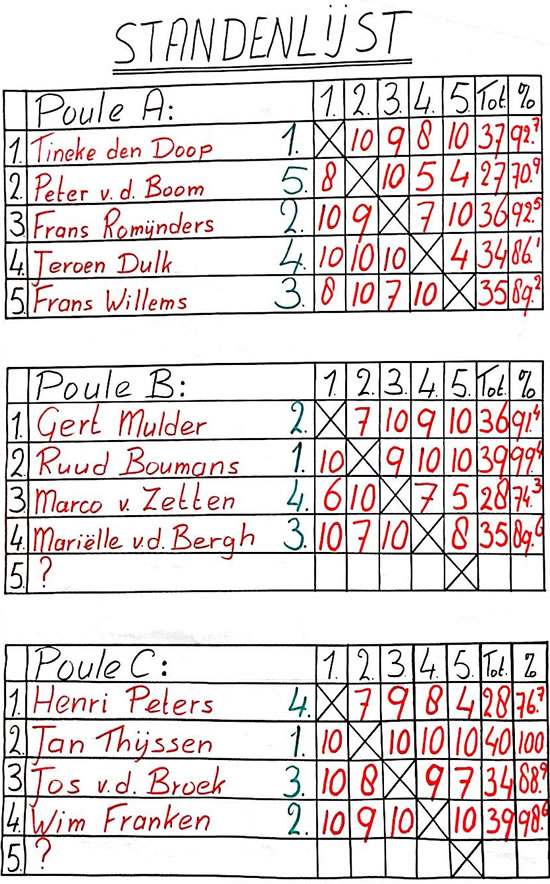 STANDENLIJST
Poule A: 1. 2. 3. 4. 5. Tot. %
1. Tineke den Doop 1. 10 9 8 10 37 92.7
2. Peter v.d. Boom 5. 8 10 5 4 27 70.9
3. Frans Romijnders 2. 10 9 7 10 36 92.5
4. Jeroen Dulk 4. 10 10 10 4 34 86.1
5. Frans Willems 3. 8 10 7 10 35 89.2
Poule B: 1. 2. 3. 4. 5. Tot. %
1. Gert Mulder 2. 7 10 9 10 36 91.4
2. Ruud Boumans 1. 10 9 10 10 39 99.4
3. Marco v. Zetten 4. 6 10 7 5 28 74.3
4. Mariëlle v.d. Bergh 3. 10 7 10 8 35 89.6
5. ?
Poule C: 1. 2. 3. 4. 5. Tot. %
1. Henri Peters 4. 7 9 8 4 28 76.7
2. Jan Thijssen 1. 10 10 10 10 40 100
3. Jos v.d. Broek 3. 10 8 9 7 34 88.9
4. Wim Franken 2. 10 9 10 10 39 98.6
5. ?